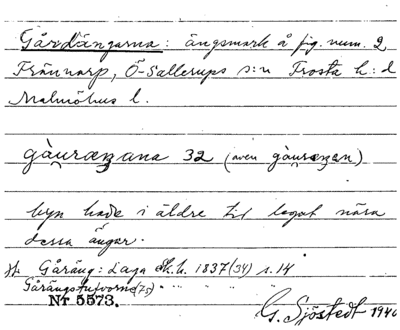 Gårdängarna: ängsmark å fig. num. 2
Frännarp, Ö-Sallerups s:n Frosta h:d
Malmöhus l.
gàuræŋana 32 (även gàuræŋan)
byn hade i äldre tid legat nära
dessa ängar.
Gåräng: Laga sk. h. 1837 (34) s. 14
Gårängstufvorne (75) " " "
Nr 5573.
G. Sjöstedt 1940